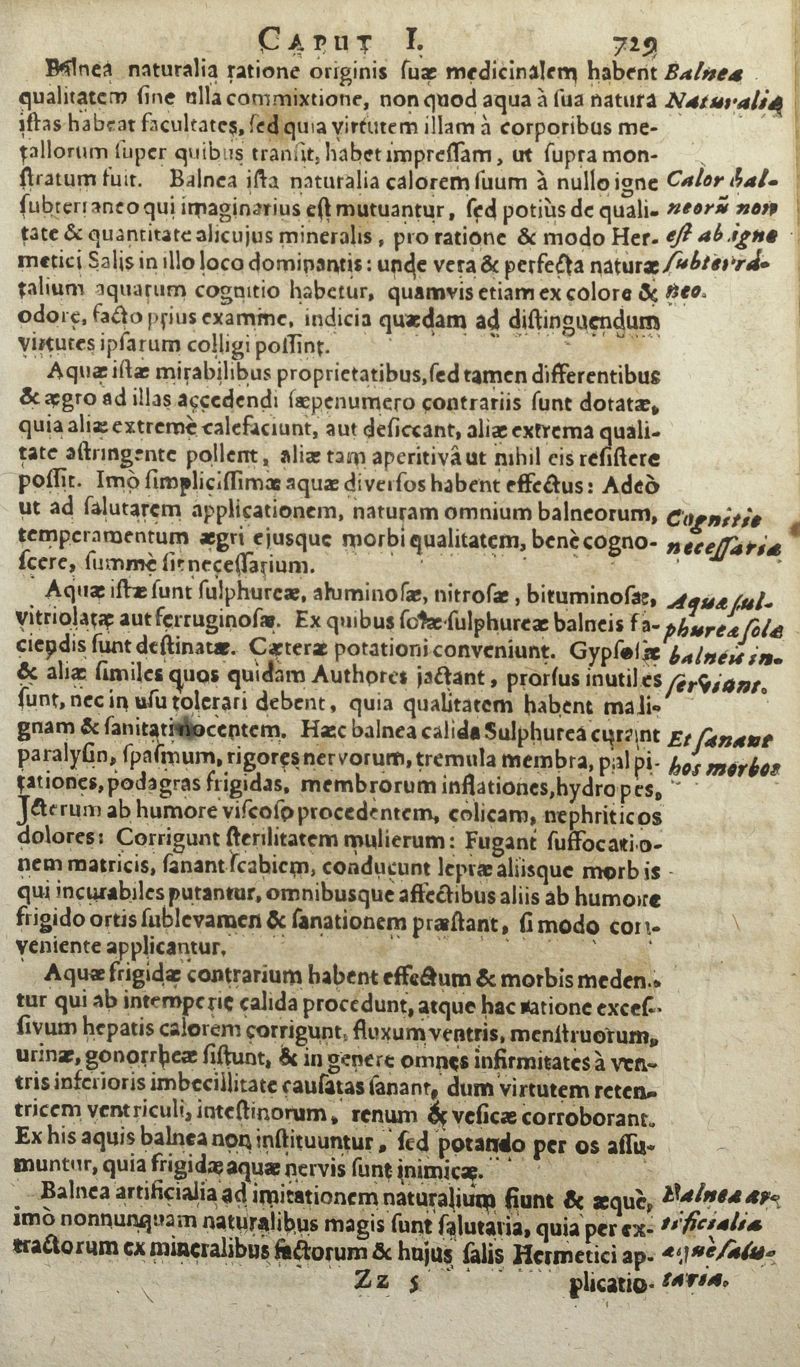 CAPUT I. 729
Balnea naturalia ratione originis ſuæ medicinalem habent Balnea
qualitatem ſine ulla commixtione, non quod aqua à ſua natura Naturalia
iſtas habeat facultates, ſed quia virtutem illam à corporibus me-
tallorum ſuper quibus tranſit, habet impreſſam, ut ſupra mon-
ſtratum fuit. Balnea iſta naturalia calorem ſuum à nullo igne Calor bal-
ſubterraneo qui imaginarius eſt mutuantur, ſed potiùs de quali- neorũ non
tate & quantitate alicujus mineralis, pro ratione & modo Her- eſt ab igne
metici Salis in illo loco dominantis: unde vera & perfecta naturæ ſubterrá-
talium aquarum cognitio habetur, quamvis etiam ex colore & neo.
odore, facto prius examine, indicia quædam ad diſtinguendum
virtutes ipſarum colligi poſſint.
Aquæ iſtæ mirabilibus proprietatibus, ſed tamen differentibus
& ægro ad illas accedendi ſæpenumero contrariis ſunt dotatæ,
quia aliæ extremè calefaciunt, aut deſiccant, aliæ extrema quali-
tate aſtringente pollent, aliæ tam aperitivâ ut nihil eis reſiſtere
poſſit. Imò ſimpliciſſimæ aquæ diverſos habent effectus: Adeò
ut ad ſalutarem applicationem, naturam omnium balneorum, Cognitio
temperamentum ægri ejusque morbi qualitatem, benè cogno- neceſſaria
ſcere, ſummè ſit neceſſarium.
Aquæ iſtæ ſunt ſulphureæ, aluminoſæ, nitroſæ, bituminoſæ, Aquæ ſul-
vitriolatæ aut ferruginoſæ. Ex quibus ſolæ ſulphureæ balneis fa- phureæ ſolæ
ciendis ſunt deſtinatæ. Cæteræ potationi conveniunt. Gypſoſæ balneis in-
& aliæ ſimiles quos quidam Authores jactant, prorſus inutiles ſerviunt.
ſunt, nec in uſu tolerari debent, quia qualitatem habent mali-
gnam & ſanitati nocentem. Hæc balnea calida Sulphurea curant Et ſanant
paralyſin, ſpaſmum, rigores nervorum, tremula membra, palpi- hos morbos
tationes, podagras frigidas, membrorum inflationes, hydropes,
Jcterum ab humore viſcoſo procedentem, colicam, nephriticos
dolores: Corrigunt ſterilitatem mulierum: Fugant ſuffocatio-
nem matricis, ſanant ſcabiem, conducunt lepræ aliisque morbis
qui incurabiles putantur, omnibusque affectibus aliis ab humore
frigido ortis ſublevamen & ſanationem præſtant, ſi modo con-
veniente applicantur.
Aquæ frigidæ contrarium habent effectum & morbis meden-
tur qui ab intemperie calida procedunt, atque hac ratione exceſ-
ſivum hepatis calorem corrigunt, fluxum ventris, menſtruorum,
urinæ, gonorrheæ ſiſtunt, & in genere omnes infirmitates à ven-
tris inferioris imbecillitate cauſatas ſanant, dum virtutem reten-
tricem ventriculi, inteſtinorum, renum & veſicæ corroborant.
Ex his aquis balnea non inſtituuntur, ſed potando per os aſſu-
muntur, quia frigidæ aquæ nervis ſunt inimicæ.
Balnea artificialia ad imitationem naturalium fiunt & æquè, Balnea ar-
imò nonnunquam naturalibus magis ſunt ſalutaria, quia per ex- tificialia
tractorum ex mineralibus factorum & hujus ſalis Hermetici ap- æquè ſalu-
Zz 5 plicatio- taria.